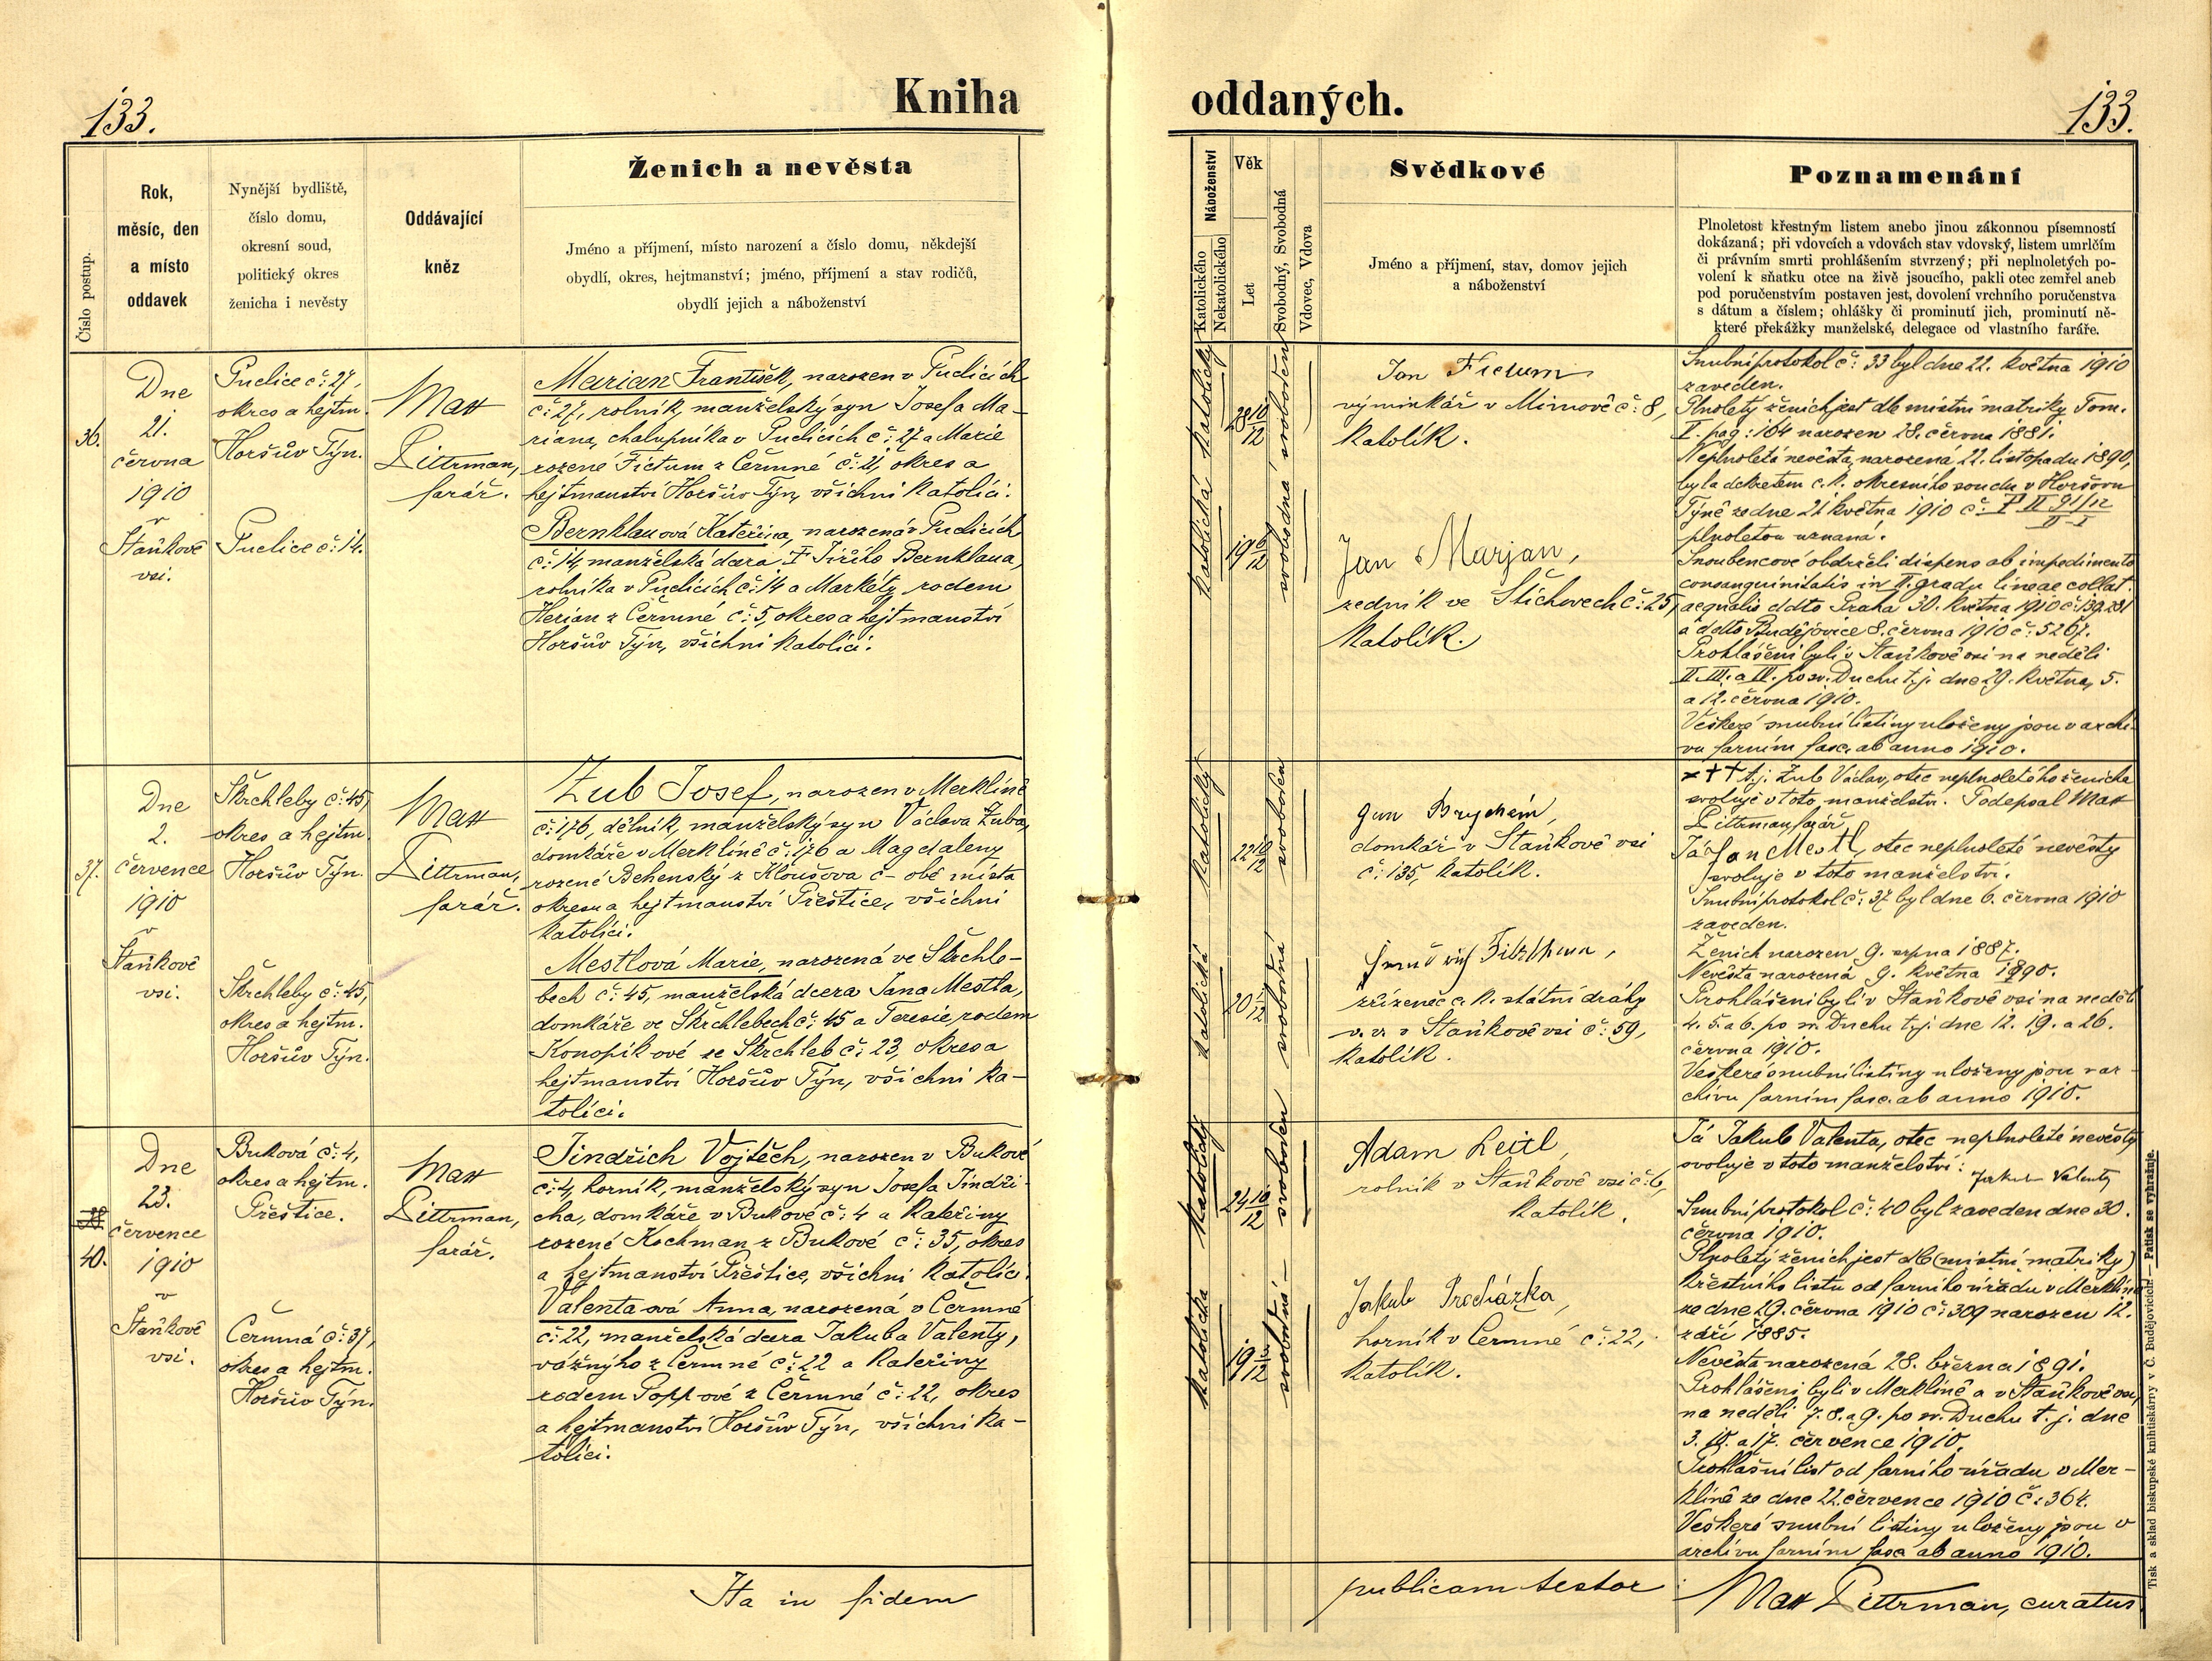 133.
Kniha
Číslo postup.
Rok,
měsíc, den
a místo
oddavek
Nynější bydliště,
číslo domu,
okresní soud,
politický okres
ženicha i nevěsty
Oddávající
kněz
Ženich a nevěsta
Jméno a příjmení, místo narození a číslo domu, někdejší
obydlí, okres, hejtmanství; jméno, příjmení a stav rodičů,
obydlí jejich a náboženství
36.
Dne
21.
června
1910
v
Staňkově
vsi.
Puclice č: 27,
okres a hejtm.
Horšův Týn.
Puclice č: 14.
Max
Dittrman,
farář.
Marian František, narozen v Puclicích
č: 27, rolník, manželský syn Josefa Ma-
riana, chalupníka v Puclicích č: 27 a Marie
rozené Fictum z Čermné č: 21, okres a
hejtmanství Horšův Týn, všichni katolíci.
Bernklauová Kateřina, narozená v Puclicích
č: 14, manželská dcera † Jiřího Bernklaua,
rolníka v Puclicích č: 14 a Markéty rodem
Herian z Čermné č: 5, okres a hejtmanství
Horšův Týn, všichni katolíci.
37.
Dne
2.
července
1910
v
Staňkově
vsi.
Škrchleby č: 45,
okres a hejtm.
Horšův Týn.
Škrchleby č: 45,
okres a hejtm.
Horšův Týn.
Max
Dittrman,
farář.
Zub Josef, narozen v Merklíně
č: 176, dělník, manželský syn Václava Zuba,
domkáře v Merklíně č: 176 a Magdaleny
rozené Behenský z Kloušova č- obě místa
okresu a hejtmanství Přeštice, všichni
katolíci.
Mestlová Marie, narozená ve Škrchle-
bech č: 45, manželská dcera Jana Mestla,
domkáře ve Škrchlebech č: 45 a Teresie, rodem
Konopíkové ze Škrchleb č: 23, okres a
hejtmanství Horšův Týn, všichni ka-
tolíci.
40.
Dne
23.
července
1910
v
Staňkově
vsi.
Buková č: 4,
okres a hejtm.
Přeštice.
Čermná č: 37,
okres a hejtm.
Horšův Týn.
Max
Dittrman,
farář.
Jindřich Vojtěch, narozen v Bukové
č: 4, horník, manželský syn Josefa Jindři-
cha, domkáře v Bukové č: 4 a Kateřiny
rozené Kochman z Bukové č: 35, okres
a hejtmanství Přeštice, všichni katolíci.
Valentaová Anna, narozená v Čermné
č: 22, manželská dcera Jakuba Valenty,
vážného z Čermné č: 22 a Kateřiny
rodem Poppové z Čermné č: 22, okres
a hejtmanství Horšův Týn, všichni ka-
tolíci.
Ita in fidem
oddaných.
133.
Náboženství
Katolického
Nekatolického
Věk
Let
Svobodný, Svobodná
Vdovec, Vdova
Svědkové
Jméno a příjmení, stav, domov jejich
a náboženství
Poznamenání
Plnoletost křestným listem anebo jinou zákonnou písemností
dokázaná; při vdovcích a vdovách stav vdovský, listem umrlčím
či právním smrti prohlášením stvrzený; při neplnoletých po-
volení k sňatku otce na živě jsoucího, pakli otec zemřel aneb
pod poručenstvím postaven jest, dovolení vrchního poručenstva
s dátum a číslem; ohlášky či prominutí jich, prominutí ně-
které překážky manželské, delegace od vlastního faráře.
katolický
28 10/12
svoboden
katolická
19 6/12
svobodná
Jan Fictum
výminkář v Mimově č: 8,
katolík.
Jan Marjan,
zedník ve Štichovech č: 25,
katolík.
Snubní protokol č: 33 byl dne 22. května 1910
zaveden.
Plnoletý ženich jest dle místní matriky Tom.
I. pag: 164 narozen 28. června 1881.
Neplnoletá nevěsta, narozená 22. listopadu 1890,
byla dekretem c. k. okresního soudu v Horšovu
Týně ze dne 21 května 1910 č:
plnoletou uznaná.
Snoubencové obdrželi dispens ab impedimento
consanguinitatis in II. gradu lineae collat.
aequalis ddto Praha 30. května 1910 č:
a ddto Budějovice 8. června 1910 č: 5267.
Prohlášeni byli v Staňkově vsi na neděli
II. III. a IV. po sv. Duchu t. j. dne 29. května, 5.
a 12. června 1910.
Veškeré snubní listiny uloženy jsou v archi-
vu farním fasc. ab anno 1910.
katolický
22 10/12
svoboden
katolická
20
svobodná
Jan Brychcín,
domkář v Staňkově vsi
č: 135, katolík.
zřízenec c. k. státní dráhy
v. v. v Staňkově vsi č: 59,
katolík.
××† t. j. Zub Václav, otec neplnoletého ženicha
svoluje v toto manželství. Podepsal Max
Dittrman, farář
Já Jan Mestl, otec neplnoleté nevěsty
svoluje v toto manželství.
Snubní protokol č: 37 byl dne 6. června 1910
zaveden.
Ženich narozen 9. srpna 1887.
Nevěsta narozená 9. května 1890.
Prohlášeni byli v Staňkově vsi na neděli
4. 5. a 6. po sv. Duchu t. j. dne 12. 19. a 26.
června 1910.
Veškeré snubní listiny uloženy jsou v ar-
chivu farním fasc. ab anno 1910.
katolický
24 10/12
svoboden
katolická
19
svobodná
Adam Leitl,
rolník v Staňkově vsi č: 6,
katolík.
Jakub Procházka,
horník v Čermné č: 22,
katolík.
Já Jakub Valenta, otec neplnoleté nevěsty
svoluje v toto manželství:
Jakub Valenta
Snubní protokol č: 40 byl zaveden dne 30.
června 1910.
Plnoletý ženich jest dle (místní matriky)
křestního listu od farního úřadu v Merklíně
ze dne 29. června 1910 č: 309 narozen 12.
září 1885.
Nevěsta narozená 28. března 1891.
Prohlášeni byli v Merklíně a v Staňkově vsi,
na neděli 7. 8. a 9. po sv. Duchu t. j. dne
3. 10. a 17. července 1910.
Prohlášní list od farního úřadu v Mer-
klíně ze dne 22. července 1910 č: 364.
Veškeré snubní listiny uloženy jsou v
archivu farním fasc. ab anno 1910.
publicam testor
Max Dittrman, curatus
Tisk a sklad biskupské knihtiskárny v Č. Budějovicích — Patisk se vyhražuje.